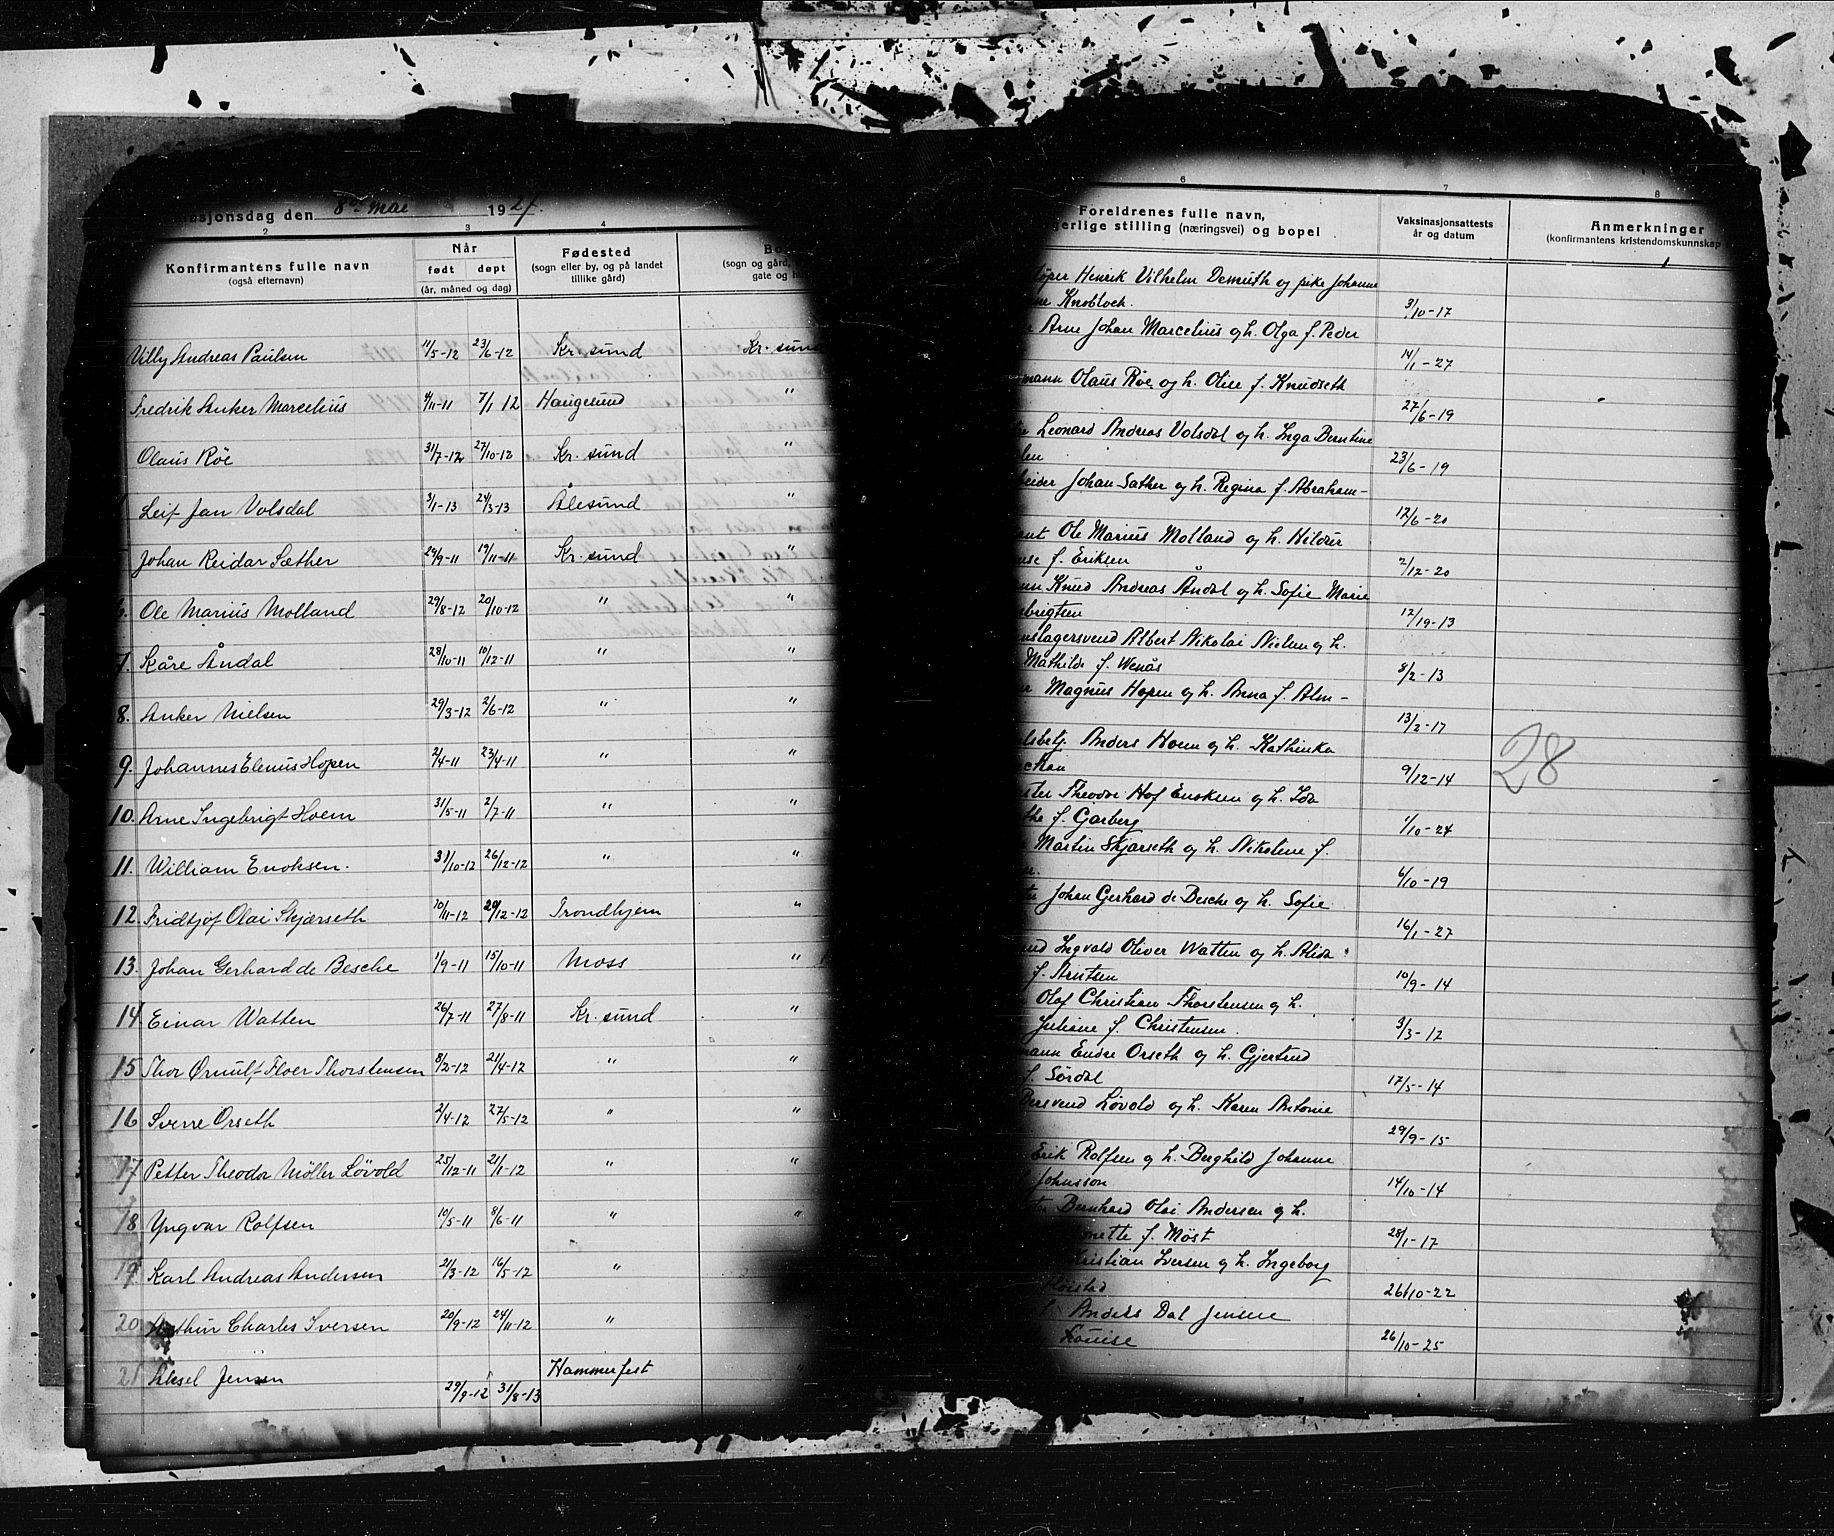 sjonsdag den 8de Mai 1927.
2 3 4
Konfirmantens fulle navn
(også efternavn)
Når
født døpt
(år, måned og dag)
Fødested
(sogn eller by, og på landet
tillike gård)
(sogn og gård,
Villy Andreas Paulsen 11/5-12 23/6-12 Kr. sund Kr. sund
Fredrik Anker Marcelius 4/11-11 7/1 12 Haugesund "
Olaus Röe 31/7-12 27/10-12 Kr. sund "
Leif Jan Volsdal 3/1-13 24/3-13 Ålesund "
Johan Reidar Sæther 29/9-11 19/11-11 Kr. sund "
6. Ole Marius Molland 29/8-12 20/10-12 " "
7. Kåre Åndal 28/10-11 10/12-11 " "
8. Anker Nielsen 29/3-12 2/6-12 " "
9. Johannes Elenus Hopen 2/4-11 23/4-11 " "
10. Arne Ingebrigt Hoem 31/5-11 2/7-11 " "
11. William Enoksen. 31/10-12 26/12-12 " "
12. Fridtjof Olai Skjærseth 10/11-12 29/12-12 Trondhjem "
13. Johan Gerhard de Besche 1/9-11 15/10-11 Moss "
14. Einar Watten 26/7-11 27/8-11 Kr. sund "
15 Thor Ørnulf Floer Thorstensen 8/2-12 21/4-12 " "
16 Sverre Orseth 2/4-12 27/5-12 " "
17 Petter Theodor Möller Lövold 25/12-11 21/1-12 " "
18 Yngvar Rolfsen 10/5-11 8/6-11 " "
19 Karl Andreas Andersen 21/3-12 16/5-12 "
20 Arthur Charles Iversen 20/9-12 24/11-12 "
21 Aksel Jensen 29/9-12 31/8-13 Hammerfest "
6 7 8
Foreldrenes fulle navn,
gerlige stilling (næringsvei) og bopel
Vaksinasjonsattests
år og datum
Anmerkninger
(konfirmantens kristendomskunnskap
Henrik Vilhelm Demuth og pike Johanne
Knobloch. 3/10-17
Arne Johan Marcelius og h. Olga f. Peder
14/1-27
mann Olaus Röe og h. Oline f. Knudseth
27/6-19
Leonard Andreas Volsdal og h. Inga Berntine
23/6-19
Johan Sæther og h. Regina f. Abraham-
12/6-20
Ole Marius Molland og h. Hildur
f. Eriksen 2/12-20
Knud Andreas Åndal og h. Sofie Marie
brigtsen 12/19-13
slagersvend Albert Nikolai Nielsen og h.
Mathilde f. Wenås 8/2-13
Magnus Hopen og h. Anna f. Alm-
13/2-17
Anders Hoem og h. Kathinka
9/12-14
28
Theodor Hof Enoksen og h. Ida
f. Garberg 1/10-24
Martin Skjærseth og h. Nikoline f.
6/10-19
Johan Gerhard de Besche og h. Sofie
16/1-27
Ingvald Oliver Watten og h. Alida
f. Arntsen 10/9-14
Olaf Christian Thorstensen og h.
Juliane f. Christensen. 3/3-12
mann Endre Orseth og h. Gjertrud
f. Sördal 17/5-14
Bersvend Lövold og h. Karen Antonie
29/9-15
Erik Rolfsen og h. Berghild Johanne
Johnsson 14/10-14
Bernhard Olai Andersen og h.
nette f. Möst 28/1-17
Kristian Iversen og h. Ingeborg
26/10-22
Anders Dal Jensen
Louise 26/10-25